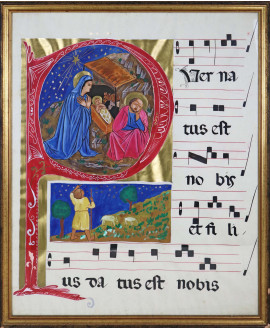 Puer na
tus est
no bis
et fi li
us da tus est nobis